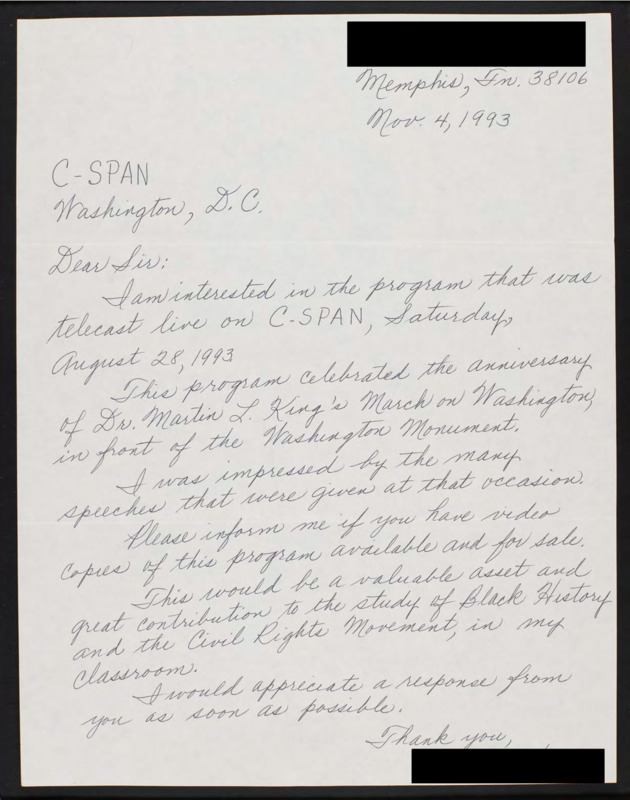 Memphis, Tn. 38106
Nov. 4, 1993
C-SPAN
Washington, D.C.
Dear Sir:
I am interested in the program that was
telecast live on C-SPAN, Saturday,
August 28, 1993
This program celebrated the anniversary
of Dr. Martin L. King's March on Washington,
in front of the Washington Monument.
I was impressed by the many
speeches that were given at that occasion.
Please inform me if you have video
copies of this program available and for sale.
This would be a valuable asset and
great contribution to the study of Black History
and the Civil Rights Movement, in my
classroom.
I would appreciate a response from
you as soon as possible.
Thank you,